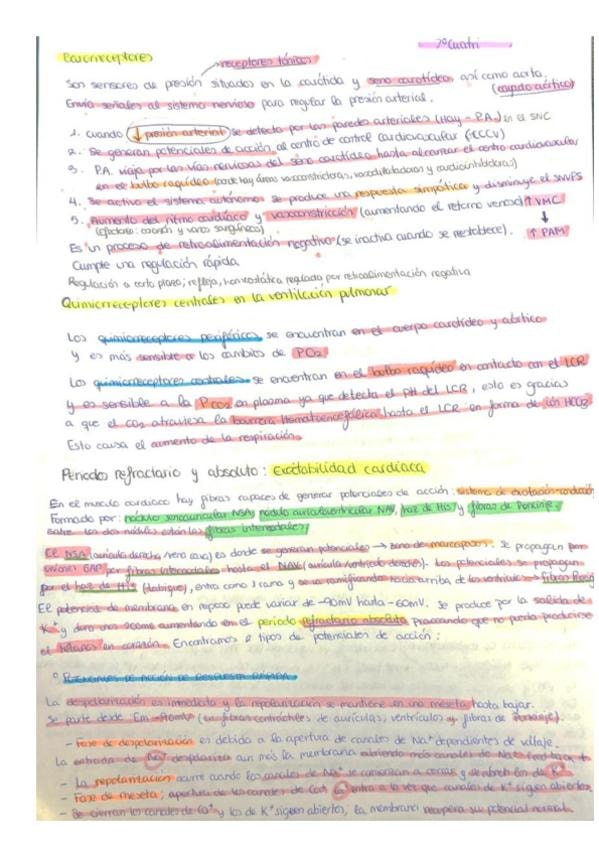 2º Cuatri
Barorreceptores → receptores tónicos
Son sensores de presión situados en la carótida y seno carotídeo, así como aorta.
(cayado aórtico)
Envía señales al sistema nervioso para regular la presión arterial.
1. cuando ↓ presión arterial se detecta por las paredes arteriales (Hay - P.A.) en el SNC
2. Se generan potenciales de acción al centro de control cardiovascular (CCCV)
3. P.A. viaja por las vías nerviosas del seno carotídeo hasta alcanzar el centro cardiovascular
en el bulbo raquídeo (donde hay áreas vasoconstrictoras, vasodilatadoras y cardioinhibidoras)
4. Se activa el sistema autónomo se produce una respuesta simpática y disminuye el SNPS
5. Aumento del ritmo cardíaco y vasoconstricción (aumentando el retorno venoso) ↑ VMC
(efectores: corazón y vasos sanguíneos)
Es un proceso de retroalimentación negativa (se inactiva cuando se reestablece). ↑ PAM
Cumple una regulación rápida
Regulación a corto plazo; refleja, homeostática regulada por retroalimentación negativa
Quimiorreceptores centrales en la ventilación pulmonar
Los quimiorreceptores periféricos se encuentran en el cuerpo carotídeo y aórtico
y es más sensible a los cambios de PO2
Los quimiorreceptores centrales se encuentran en el bulbo raquídeo en contacto con el LCR
y es sensible a la PCO2 en plasma ya que detecta el pH del LCR, esto es gracias
a que el CO2 atraviesa la barrera Hematoencefálica hasta el LCR en forma de ión HCO3
Esto causa el aumento de la respiración.
Periodos refractario y absoluto: Excitabilidad cardíaca
En el musculo cardiaco hay fibras capaces de generar potenciales de acción: sistema de excitación-conducción
Formado por: nódulo senoauricular NSA, nódulo auriculoventricular NAV, haz de His y fibras de Porkinje.
entre los dos nódulos están las fibras internodales
El NSA (aurícula derecha/vena cava) es donde se generan potenciales → zona de marcapasos. Se propagan por
uniones GAP por fibras internodales hasta el NAV (aurícula/ventrículo derecho). Los potenciales se propagan
por el haz de His (tabique), entra como 1 rama y se va ramificando hacia arriba de los ventrículos →
El potencial de membrana en reposo puede variar de -90mV hasta -60mV. Se produce por la salida de
K+ y dura aumentando en el periodo refractario absoluto provocando que no pueda producirse
el tétanos en corazón. Encontramos 2 tipos de potenciales de acción:
º POTENCIALES DE ACCIÓN DE RESPUESTA RÁPIDA
La despolarización es inmediata y la repolarización se mantiene en una meseta hasta bajar.
Se parte desde Em -90mV (en fibras contráctiles de aurículas, ventrículos y fibras de Porkinje).
- Fase de despolarización es debida a la apertura de canales de Na+ dependientes de voltaje.
La entrada de Na+ despolariza aun más la membrana abriendo más canales de Na+
- La repolarización ocurre cuando los canales de Na+ se comienzan a cerrar y se abren los de K+
- Fase de meseta; apertura de los canales de Ca2+ entra a la vez que canales de K+ siguen abiertos.
- Se cierran los canales de Ca2+ y los de K+ siguen abiertos, la membrana recupera su potencial normal.